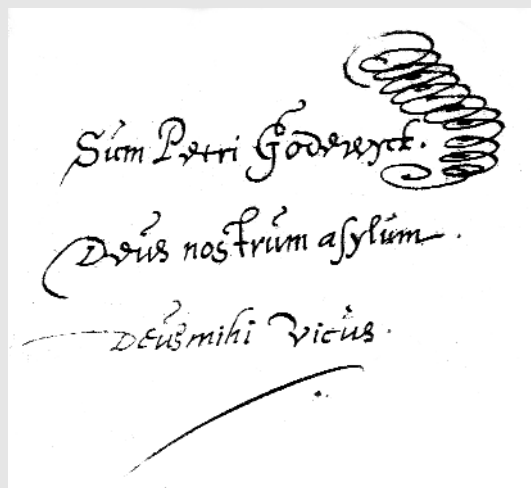 Sum Petri Godewyck.
Deus nostrum asylum.
Deus mihi Vicus.